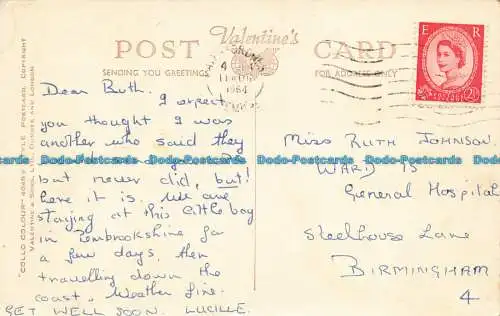 POST Valentine's CARD
SENDING YOU GREETINGS
FOR ADDRESS ONLY
E R
1964
Dear Ruth. I expect
you thought I was
another who said they
but never did, but!
here it is. We are
staying at this little bay
in Pembrokshire for
a few days, then
travelling down the
coast. Weather fine.
GET WELL SOON. LUCILLE.
MISS RUTH JOHNSON.
WARD 15
General Hospital
Steelhouse Lane
BIRMINGHAM
4
"COLLO COLOUR" STYLE POSTCARD, COPYRIGHT
VALENTINE & SONS, LTD., DUNDEE AND LONDON
Postcards Postcards Postcards Postcards Postcards